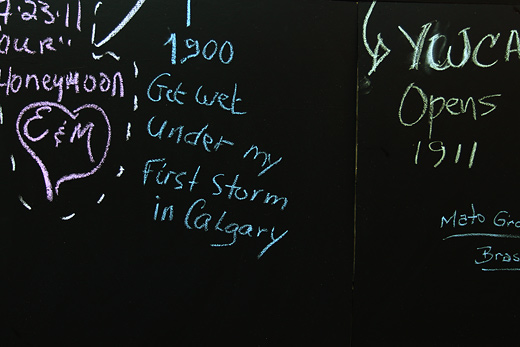 7.23.11
our
Honeymoon
E & M
1900
Get wet
Under my
First Storm
in Calgary
YWCA
Opens
1911
Mato